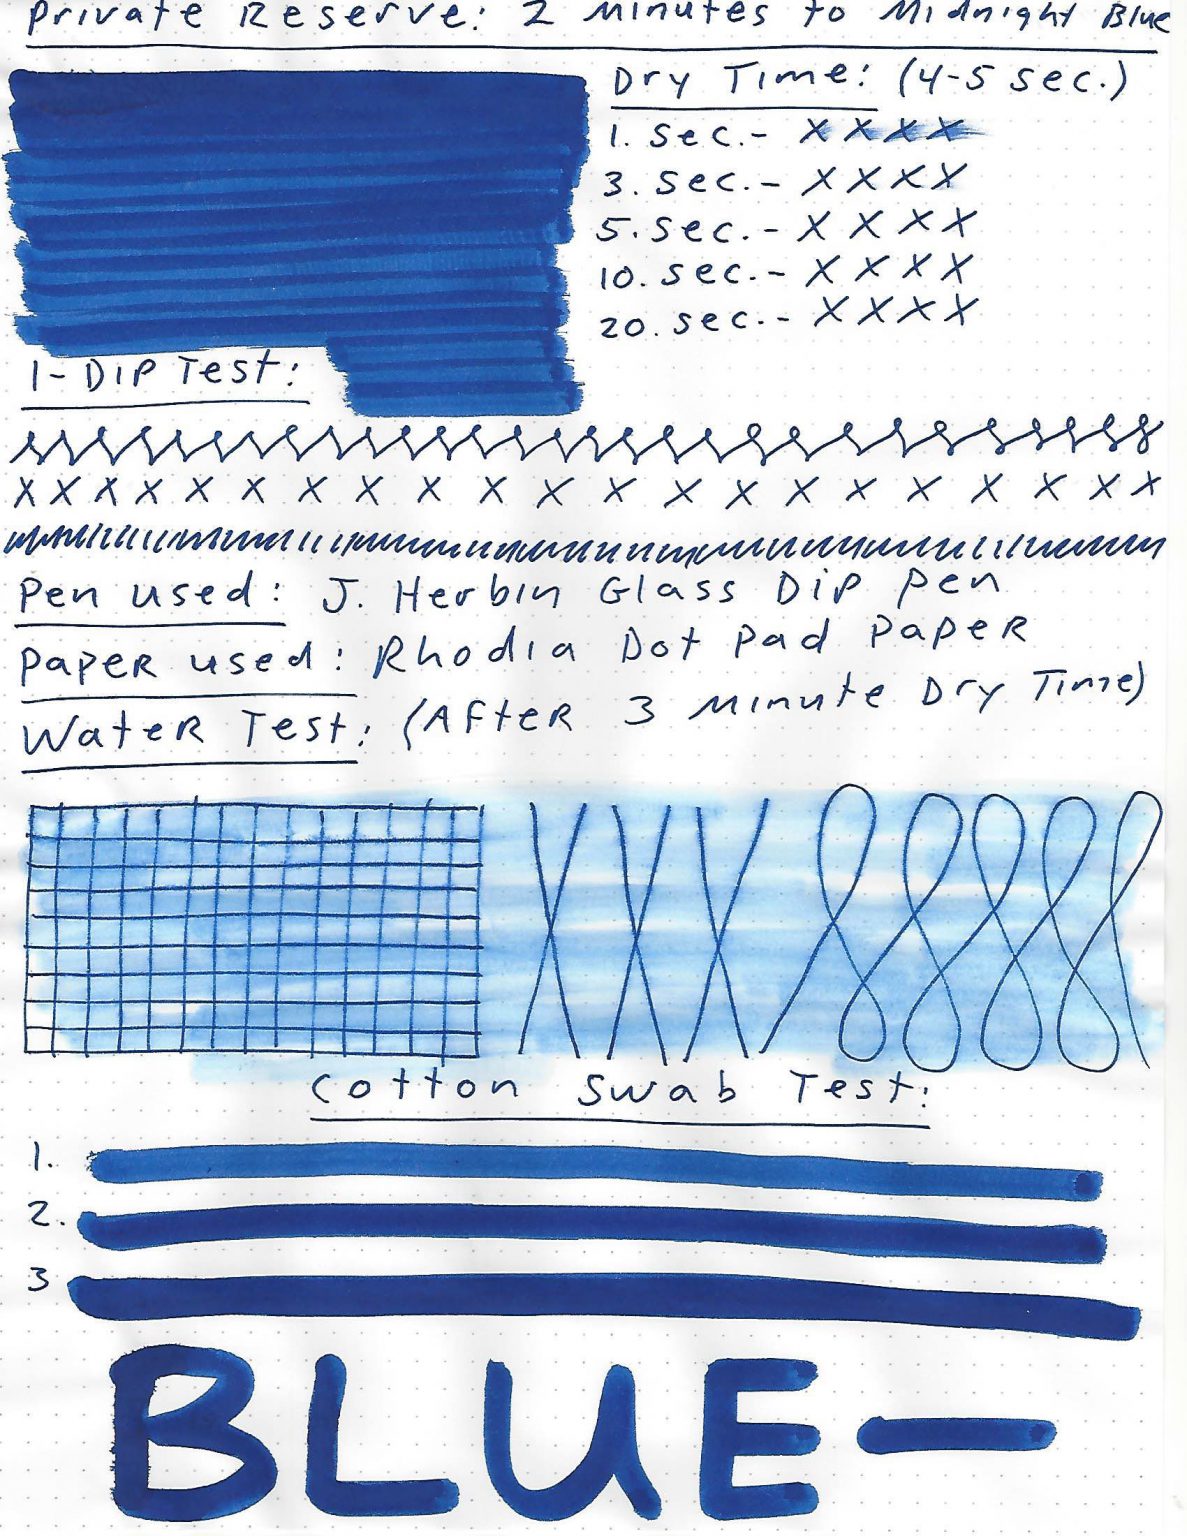 Private Reserve: 2 Minutes to Midnight Blue
Dry Time: (4-5 sec.)
1. sec.- X X X X
3. sec.- X X X X
5. sec.- X X X X
10. sec.- X X X X
20. sec.- X X X X
1-Dip Test:
X X X X X X X X X X X X X X X X X X X X X
Pen used: J. Herbin Glass Dip Pen
Paper used: Rhodia Dot Pad Paper
Water Test: (After 3 Minute Dry Time)
Cotton Swab Test:
1.
2.
3
BLUE—